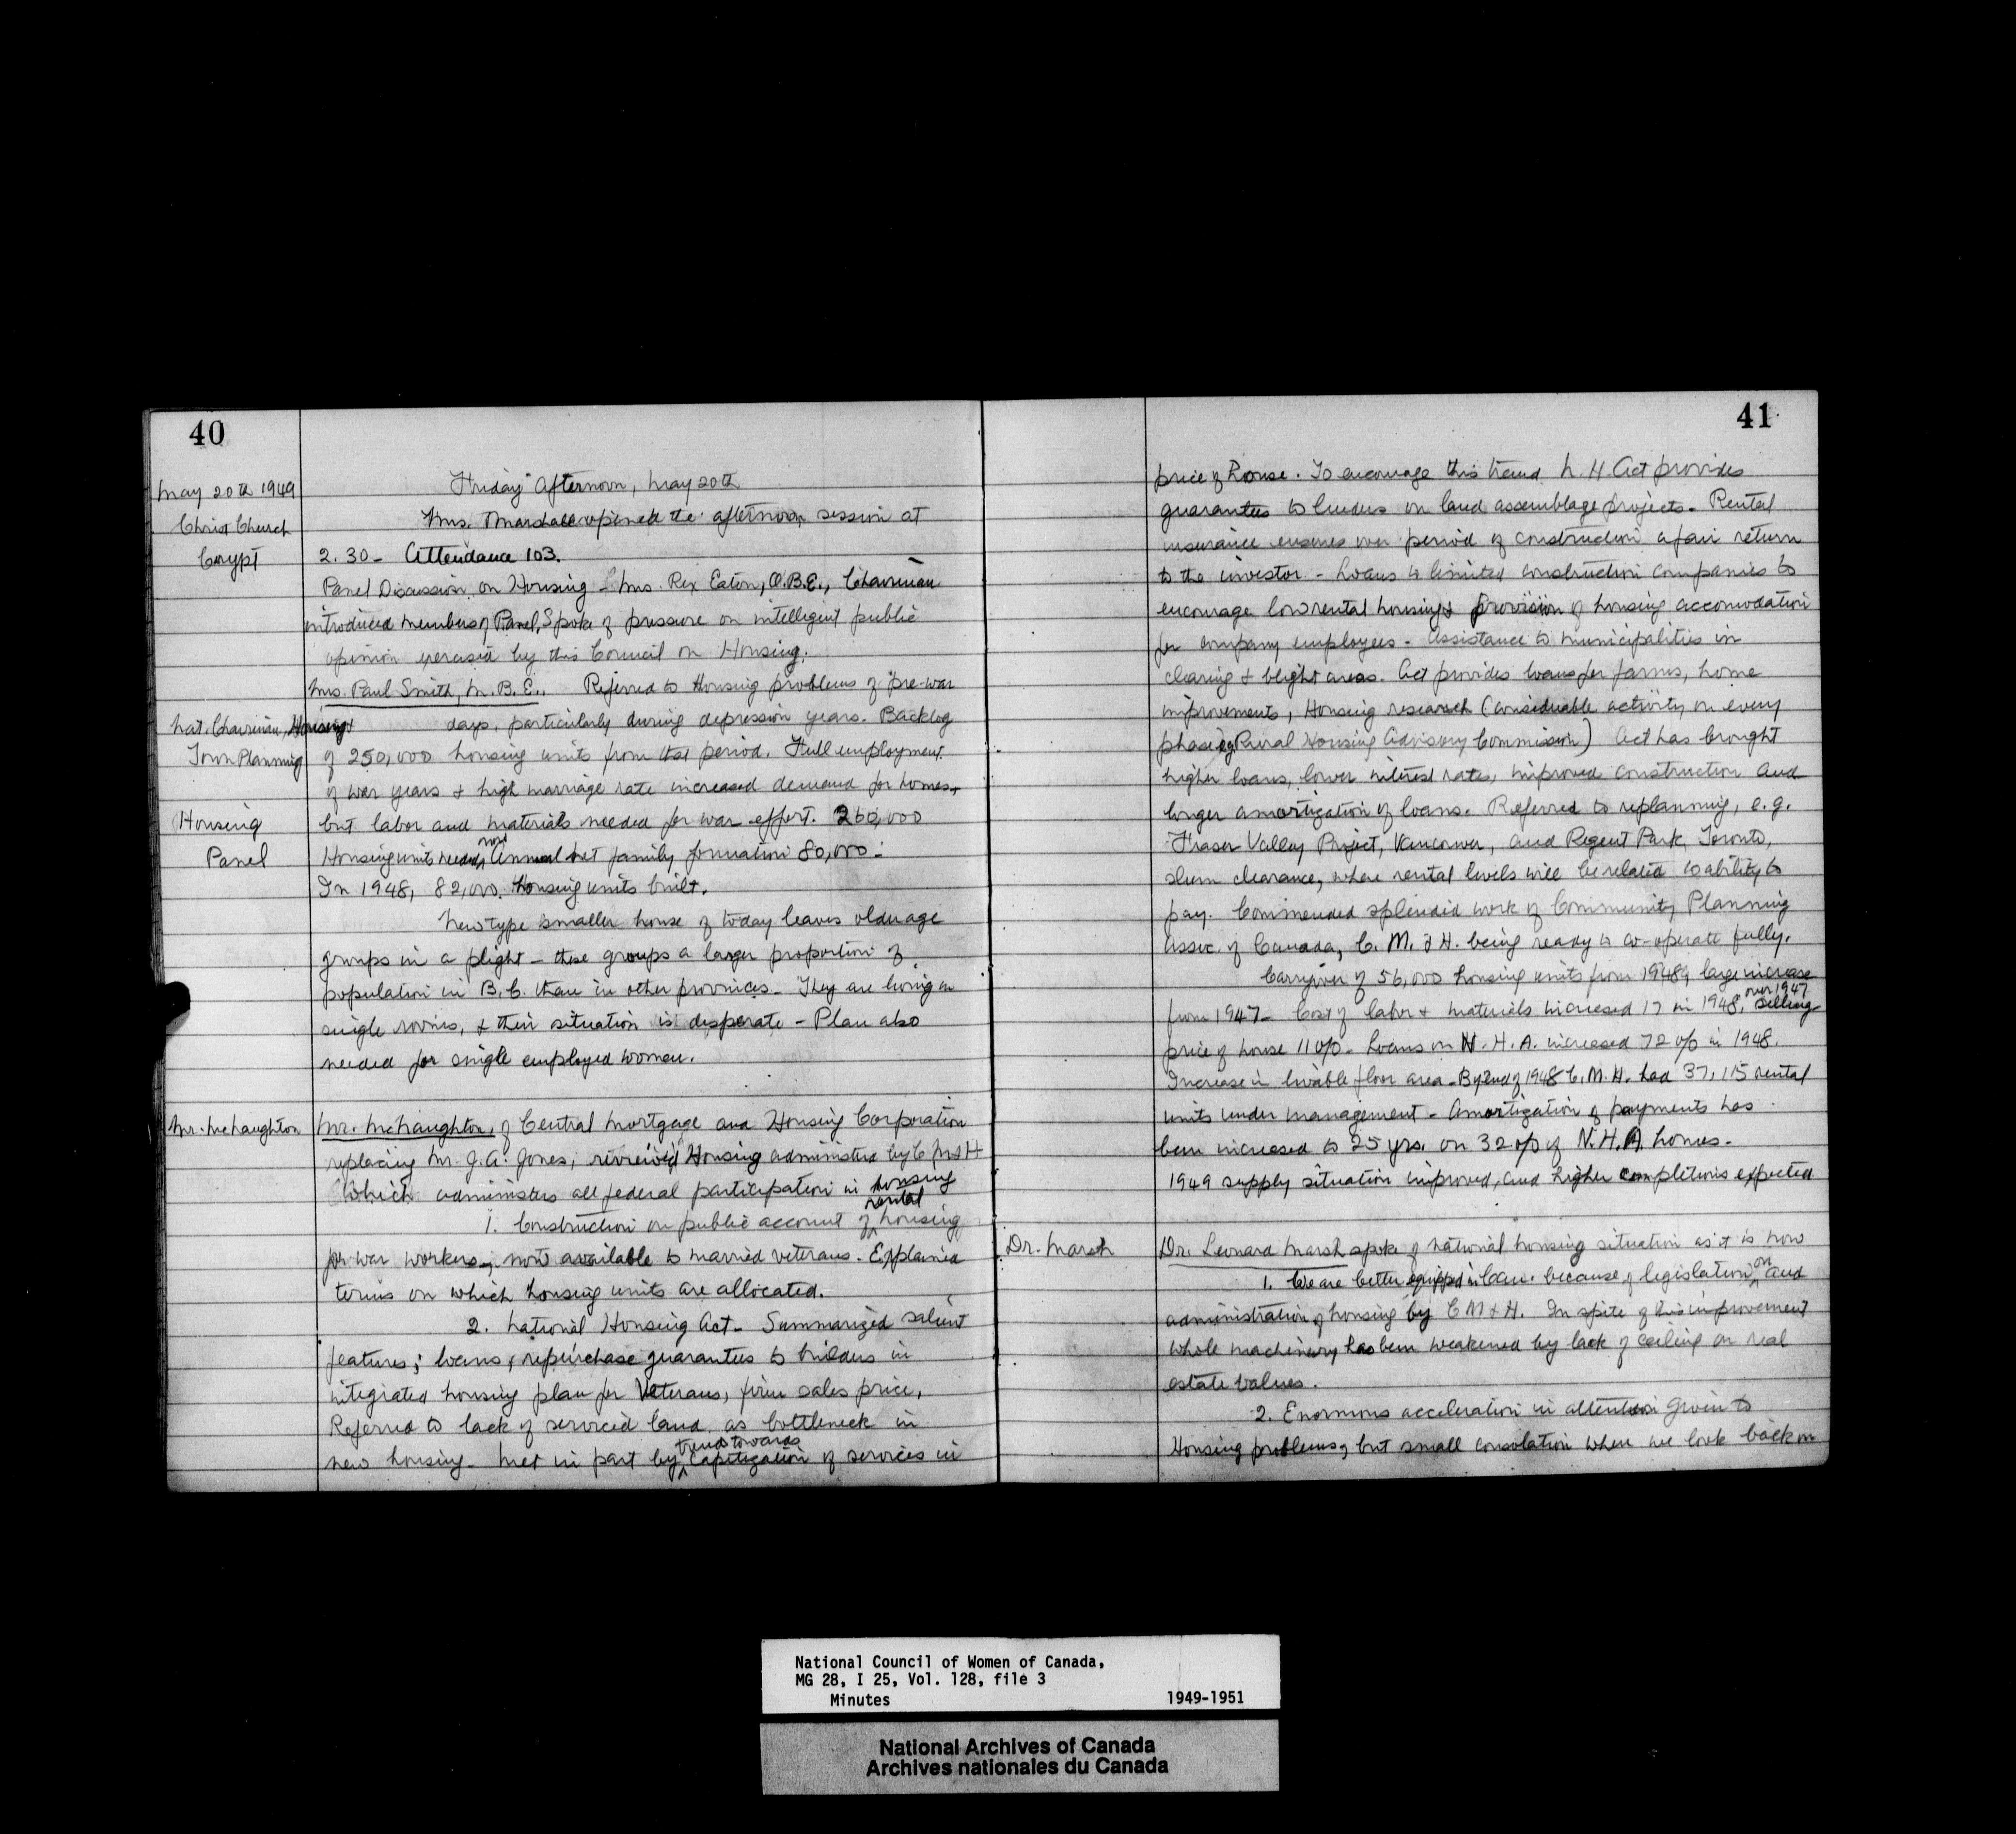 40
May 20th 1949
Christ Church
Crypt
Friday Afternoon, May 20th
Mrs. Marshall opened the afternoon session at
2.30 - Attendance 103.
Panel Discussion on Housing - Mrs. Rex Eaton, O.B.E., Chairman
introduced members of Panel, Spoke of pressure on intelligent public
opinion exercised by this Council on Housing.
Mrs. Paul Smith, M.B.E., Referred to Housing problems of pre-war
Nat. Chairman, Housing &
Town Planning
days, particularly during depression years. Backlog
of 250,000 housing units from that period. Full employment
of war years & high marriage rate increased demand for homes,
Housing
Panel
but labor and materials needed for war effort. 260,000
Housing units needed now Annual net family formation 80,000 -
In 1948, 82,000 housing units built.
New type smaller house of today leaves older age
groups in a plight - these groups a larger proportion of
population in B.C. than in other provinces - They are living in
single rooms, & their situation is desperate - Plan also
needed for single employed women.
Mr. McNaughton
Mr. McNaughton, of Central Mortgage and Housing Corporation
replacing Mr. J.A. Jones, reviewed Housing administered by C M & H
which administers all federal participation in housing
1. Construction on public account of rental housing
for war workers, now available to married veterans. Explained
terms on which housing units are allocated.
2. National Housing Act - Summarized salient
features; loans, repurchase guarantees to builders in
integrated housing plan for Veterans, firm sales price,
Referred to lack of serviced land as bottleneck in
new housing - Met in part by trend towards capitization of services in
41
price of house. To encourage this trend N.H. Act provides
guarantees to lenders on land assemblage projects - Rental
insurance ensures over period of construction a fair return
to the investor - Loans to limited construction companies to
encourage low rental housing & provision of housing accomodation
for company employees - Assistance to municipalities in
clearing & blight areas. Act provides loans for farms, home
improvements, Housing research (Considerable activity on every
phase eg Rural Housing Advisory Commission) Act has brought
higher loans, lower interest rates, improved construction and
longer amortization of loans. Referred to replanning, e.g.
Fraser Valley Project, Vancouver, and Regent Park, Toronto,
slum clearance, where rental levels will be related to ability to
pay. Commended splendid work of Community Planning
Assoc. of Canada, C. M. & H. being ready to co-operate fully.
Carryover of 56,000 housing units from 1948, large increase
from 1947 - Cost of labor & materials increased 17 in 1948, over 1947 selling
price of house 11 o/o - Loans on N.H.A. increased 72 o/o in 1948.
Increase in livable floor area - By end of 1948 C.M.H. had 37,115 rental
units under management - Amortization of payments has
been increased to 25 yrs. on 32 o/o of N.H.A. homes -
1949 supply situation improved, and higher completions expected
Dr. Marsh
Dr. Leonard Marsh spoke of national housing situation as it is now
1. We are better equipped in Can. because of legislation on and
administration of housing by C M & H. In spite of this improvement
whole machinery has been weakened by lack of ceiling on real
estate values.
2. Enormous acceleration in attention given to
Housing problems, but small consolation when we look back on
National Council of Women of Canada,
MG 28, I 25, Vol. 128, file 3
Minutes 1949-1951
National Archives of Canada
Archives nationales du Canada